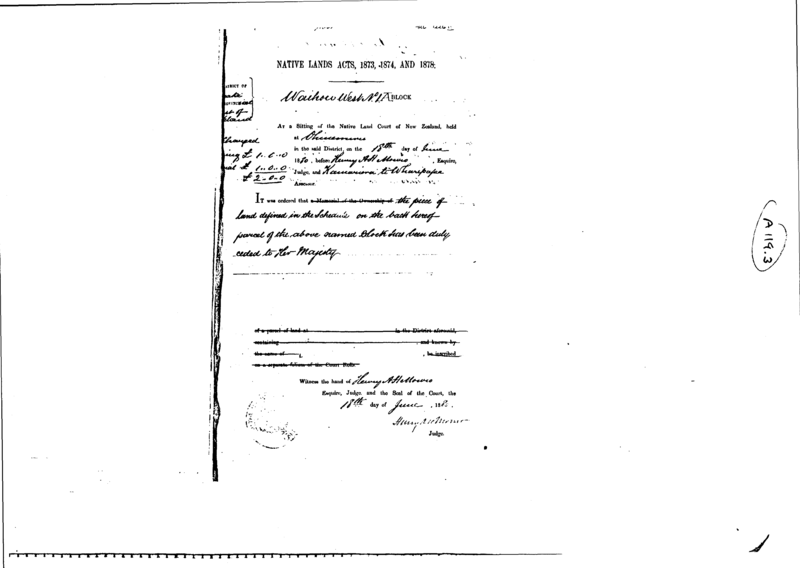 NATIVE LANDS ACTS, 1873, 1874, AND 1878.
Waihou West No 1A BLOCK
AT a Sitting of the Native Land Court of New Zealand, held
at Ohinemuri
in the said District, on the 18th day of June
1880, before Henry A H Monro, Esquire,
Judge, and Kamariera te Wharepapa
Assessor.
£ 1-0-0
£ 1-0-0
£ 2-0-0
IT was ordered that a Memorial of the Ownership of the piece of
land defined in the Schedule on the back hereof
parcel of the above named Block has been duly
ceded to Her Majesty
of a parcel of land at in the District aforesaid,
containing and known by
the name of , be inscribed
on a separate folium of the Court Rolls.
Witness the hand of Henry A H Monro
Esquire, Judge, and the Seal of the Court, the
18th day of June, 188
Henry A H Monro
Judge.
A 119.3